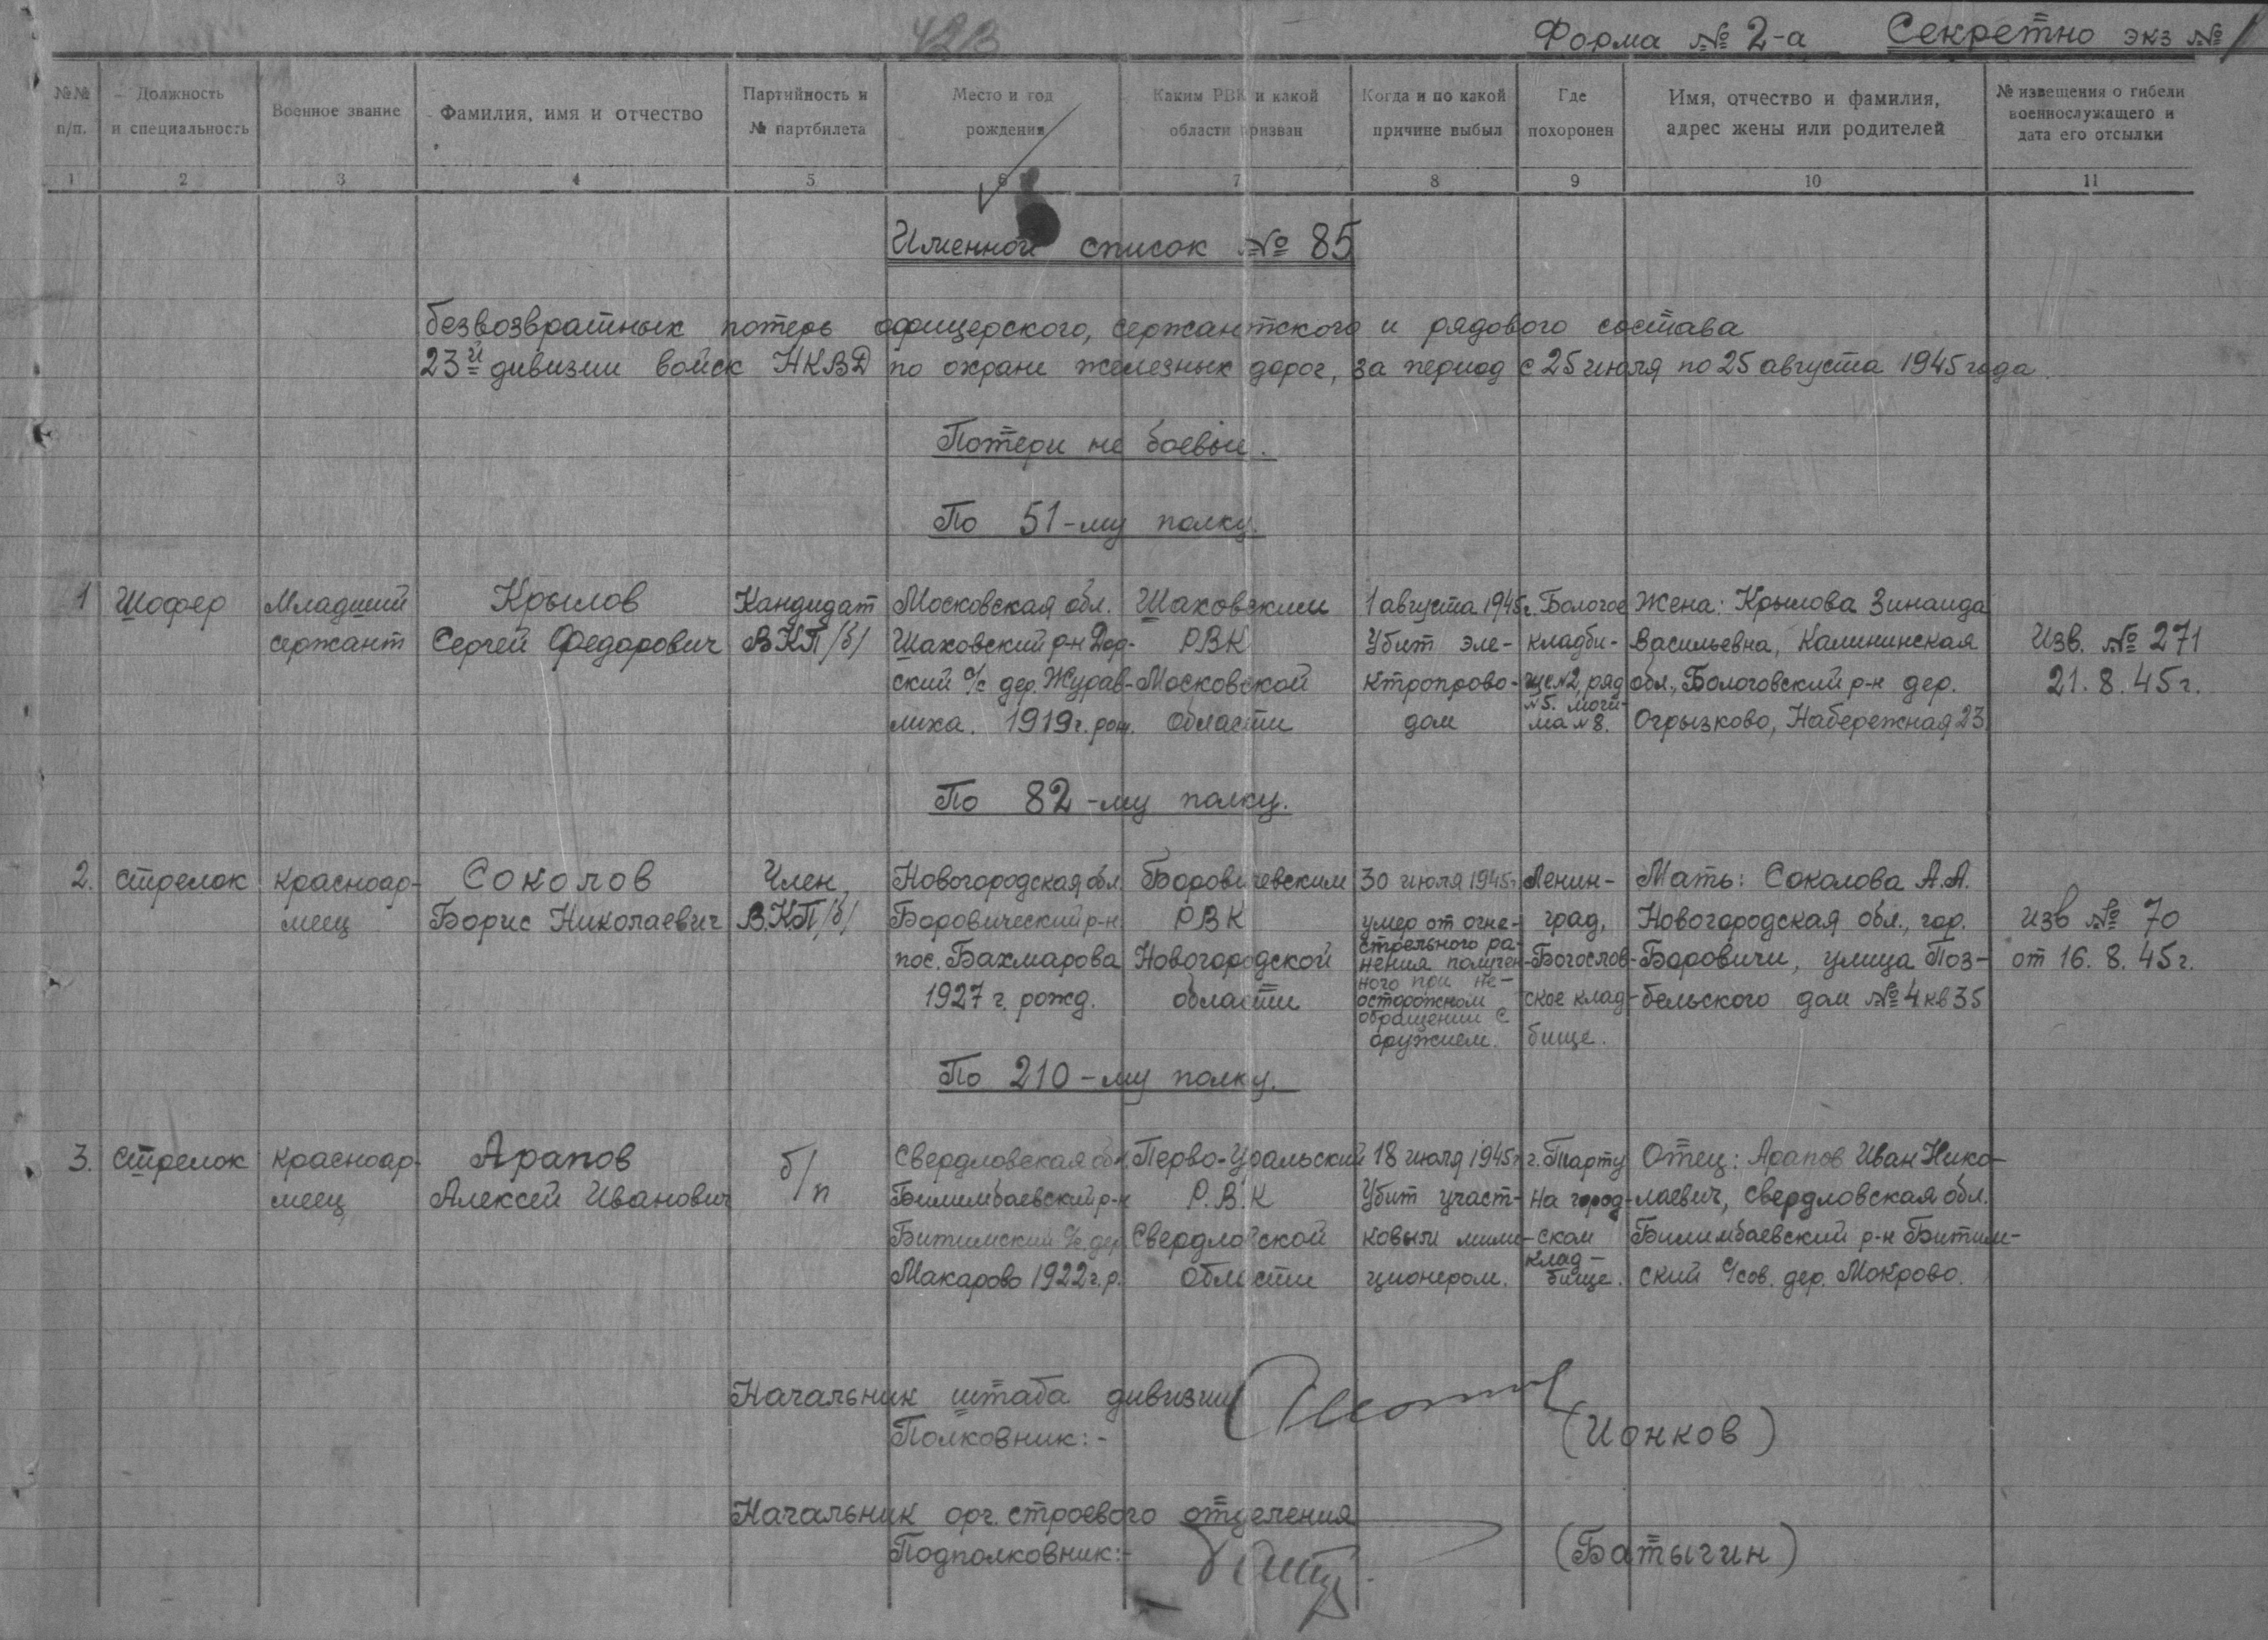 Форма № 2-а Секретно экз №1
№№ п/п.
Должность и специальность
Военное звание
Фамилия, имя и отчество
Партийность и № партбилета
Место и год рождения
Каким РВК и какой области призван
Когда и по какой причине выбыл
Где похоронен
Имя, отчество и фамилия, адрес жены или родителей
№ извещения о гибели военнослужащего и дата его отсылки
1 2 3 4 5 6 7 8 9 10 11
Именной список № 85
безвозвратных потерь офицерского, сержантского и рядового состава
23й дивизии войск НКВД по охране железных дорог, за период с 25 июля по 25 августа 1945 года.
Потери не боевые.
По 51-му полку.
1
Шофер
Младший
сержант
Крылов
Сергей Федорович
Кандидат
ВКП/б/
Московская обл.
Шаховский р-н Дор-
ский с/с дер. Журав-
лиха. 1919г. рож.
Шаховским
РВК
Московской
области
1 августа 1945г.
Убит эле-
ктропрово-
дом
Бологое
кладби-
ще №2, ряд
№5. моги-
ла №8.
Жена: Крылова Зинаида
Васильевна, Калининская
обл., Бологовский р-н дер.
Огрызково, Набережная 23
Изв. № 271
21. 8. 45 г.
По 82-му полку.
2.
стрелок
красноар-
меец
Соколов
Борис Николаевич
Член
В.К.П/б/
Новогородская обл.
Боровический р-н
пос. Бахмарова
1927 г. рожд.
Боровичевским
РВК
Новогородской
области
30 июля 1945г
умер от огне-
стрельного ра-
нения получен-
ного при не-
осторожном
обращении с
оружием.
Ленин-
град,
Богослов-
ское клад-
бище.
Мать: Соколова А.А.
Новогородская обл., гор.
Боровичи, улица Поз-
бельского дом № 4 кв 35
изв № 70
от 16. 8. 45 г.
По 210-му полку.
3.
стрелок
красноар-
меец
Арапов
Алексей Иванович
б/п
Свердловская обл
Билимбаевский р-н
Битимский с/с. дер.
Макарово 1922 г. р.
Перво-Уральский
Р.В.К
Свердловской
области
18 июля 1945г
Убит участ-
ковым мили-
ционером.
г. Тарту
на город-
ском
клад-
бище.
Отец: Арапов Иван Нико-
лаевич, Свердловская обл.
Билимбаевский р-н Битим-
ский с/сов. дер. Мокрово.
Начальник штаба дивизии
Полковник:-
(Ионков)
Начальник орг. строевого отделения
Подполковник:-
(Батыгин)